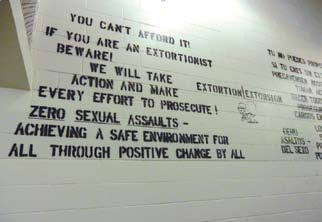 YOU CAN'T AFFORD IT!
IF YOU ARE AN EXTORTIONIST
BEWARE!
WE WILL TAKE
ACTION AND MAKE
EVERY EFFORT TO PROSECUTE!
ZERO SEXUAL ASSAULTS -
ACHIEVING A SAFE ENVIRONMENT FOR
ALL THROUGH POSITIVE CHANGE BY ALL
EXTORTION EXTORSION
TU NO PUEDES
SI TU ERES UN
CERO
ASALTOS -
DEL SEXO